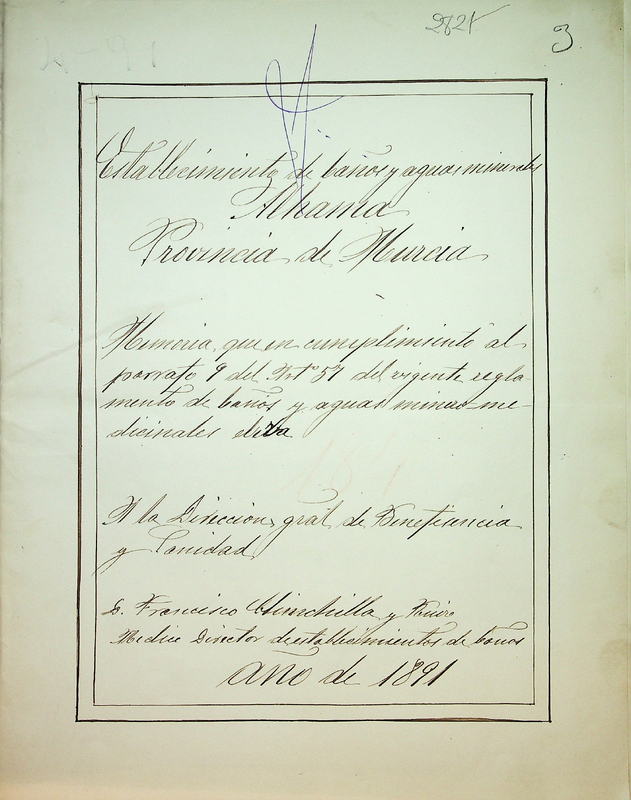 2821
3
Establecimiento de baños y aguas minerales
Alhama
Provincia de Murcia
Memoria que en cumplimiento al
parrafo 9 del Artº 57 del vigente regla-
mento de baños y aguas minero-me-
dicinales eleva
A la Direccion gral de Beneficencia
y Sanidad
D. Francisco Chinchilla y
Medico Director de establecimientos de baños
año de 1891